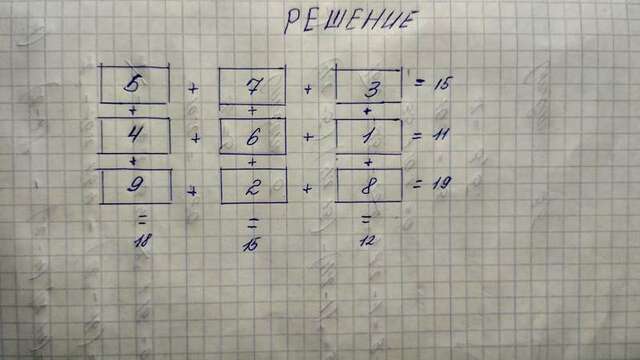 РЕШЕНИЕ
5 + 7 + 3 = 15
+ + +
4 + 6 + 1 = 11
+ + +
9 + 2 + 8 = 19
= = =
18 15 12